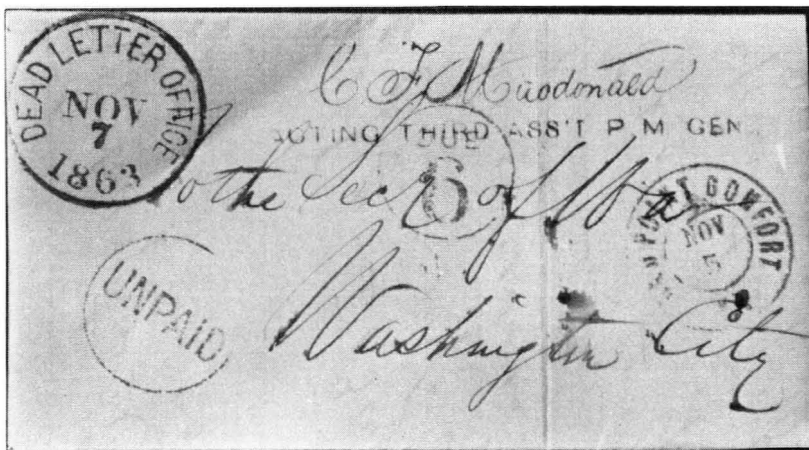 DEAD LETTER OFFICE
NOV
7
1863
C F Macdonald
ACTING THIRD ASS'T P. M. GEN
DUE
6
To the Secy of War
POINT COMFORT
NOV
UNPAID
Washington City